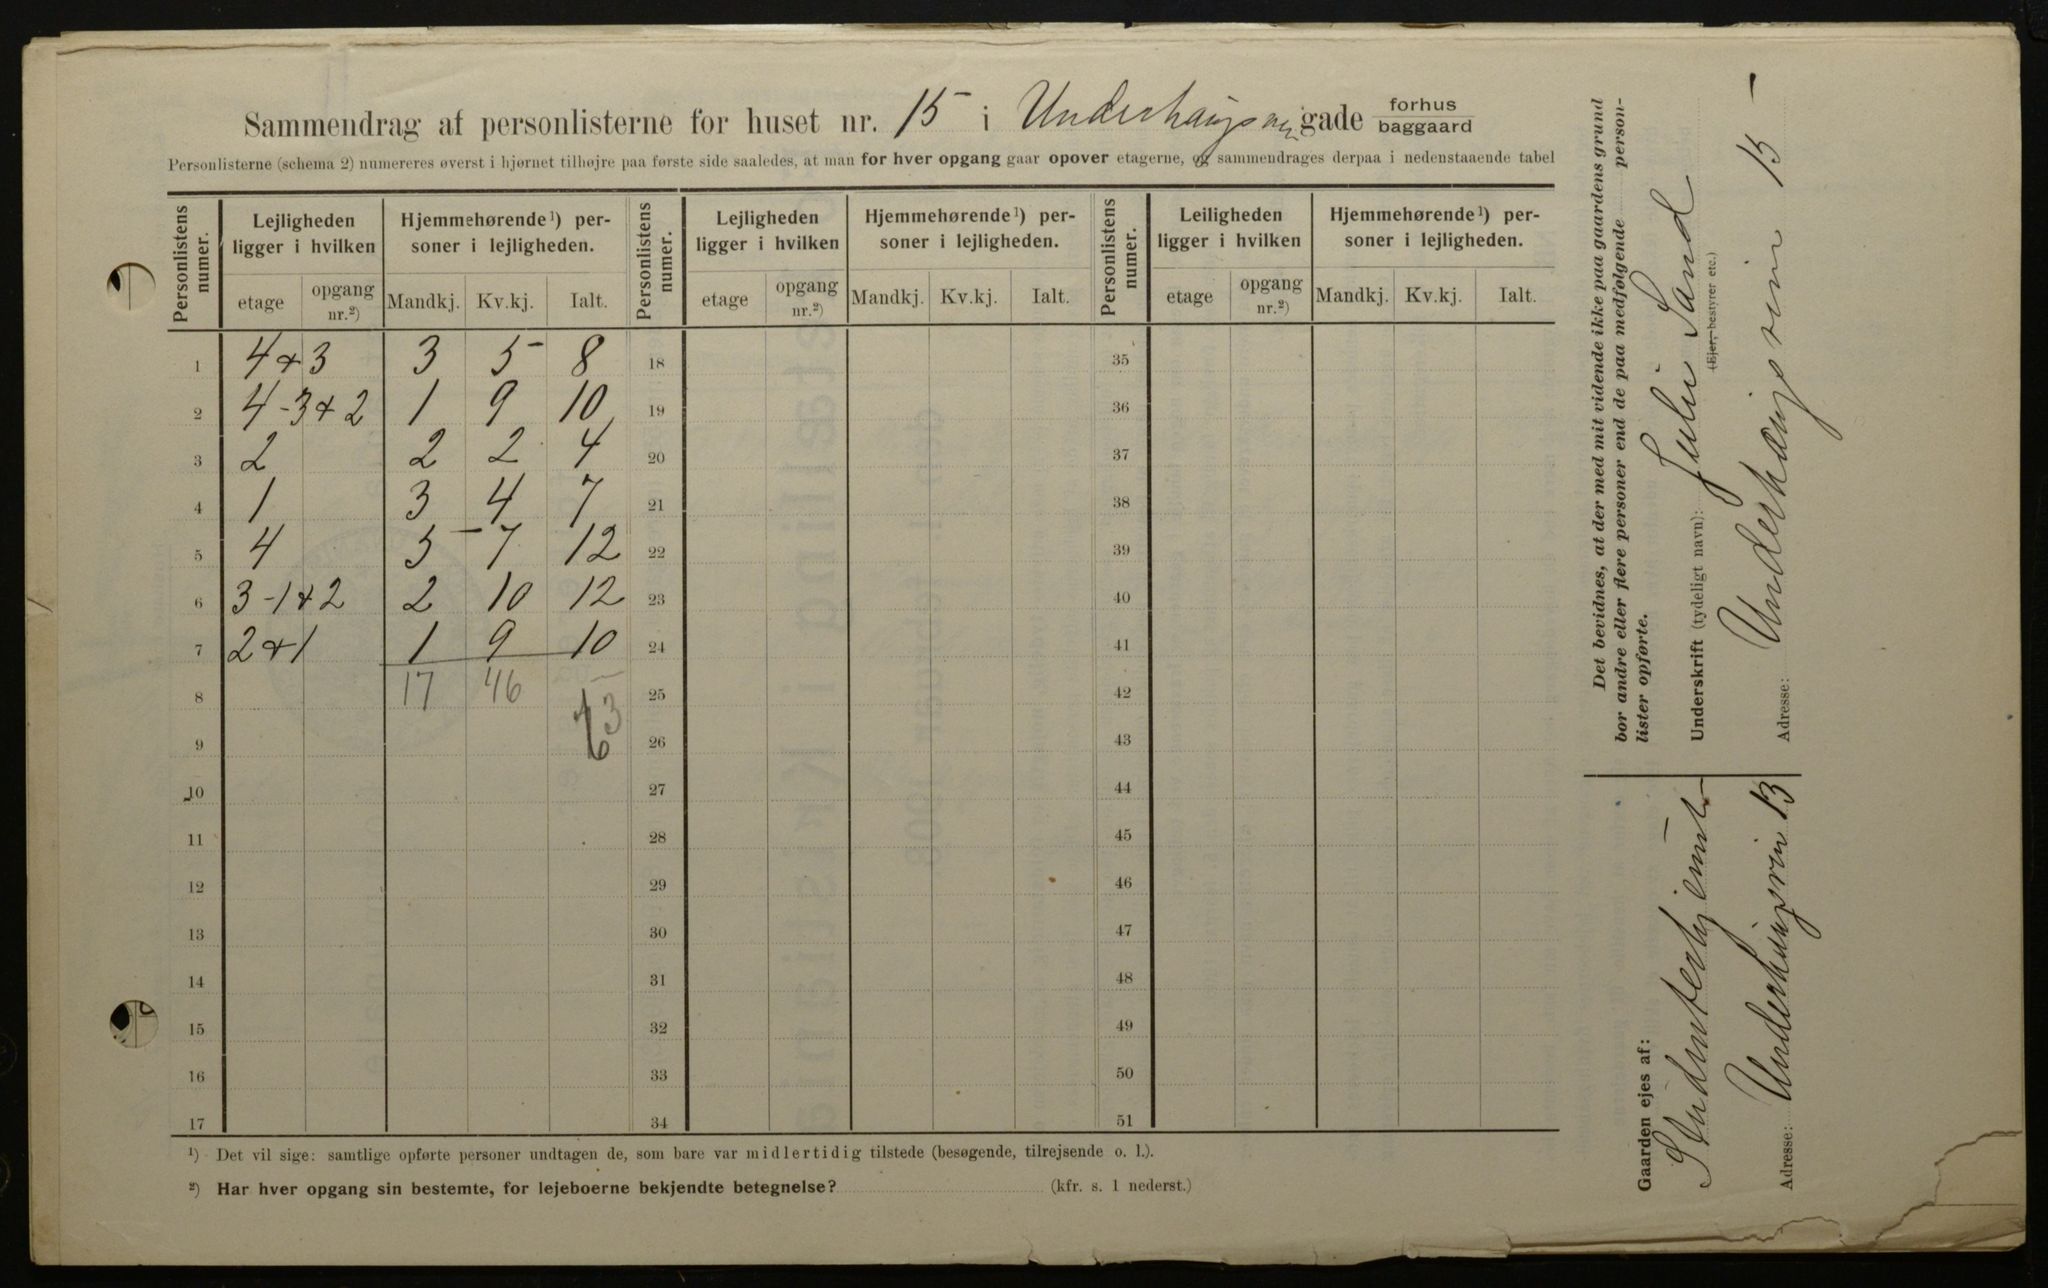 Sammendrag af personlisterne for huset nr. 15 i Underhaugsvngade forhus baggaard
Personlisterne (schema 2) numereres øverst i hjørnet tilhøjre paa første side saaledes, at man for hver opgang gaar opover etagerne, og sammendrages derpaa i nedenstaaende tabel
Personlistens numer. Lejligheden ligger i hvilken Hjemmehørende¹) personer i lejligheden. Personlistens numer. Lejligheden ligger i hvilken Hjemmehørende¹) personer i lejligheden. Personlistens numer. Leiligheden ligger i hvilken Hjemmehørende¹) personer i lejligheden.
etage opgang nr.²) Mandkj. Kv.kj. Ialt. etage opgang nr.²) Mandkj. Kv.kj. Ialt. etage opgang nr.²) Mandkj. Kv.kj. Ialt.
1 4+3 3 5 8 18 35
2 4-3+2 1 9 10 19 36
3 2 2 2 4 20 37
4 1 3 4 7 21 38
5 4 5 7 12 22 39
6 3-1+2 2 10 12 23 40
7 2+1 1 9 10 24 41
8 17 46 63 25 42
9 26 43
10 27 44
11 28 45
12 29 46
13 30 47
14 31 48
15 32 49
16 33 50
17 34 51
¹) Det vil sige: samtlige opførte personer undtagen de, som bare var midlertidig tilstede (besøgende, tilrejsende o. l.).
²) Har hver opgang sin bestemte, for lejeboerne bekjendte betegnelse? (kfr. s. 1 nederst.)
Det bevidnes, at der med mit vidende ikke paa gaardens grund
bor andre eller flere personer end de paa medfølgende personlister opførte.
Underskrift (tydeligt navn): Julie Sand
(Ejer, bestyrer etc.)
Adresse: Underhaugsvein 15
Gaarden ejes af:
Studenterhjemmet
Adresse: Underhaugsvein 13